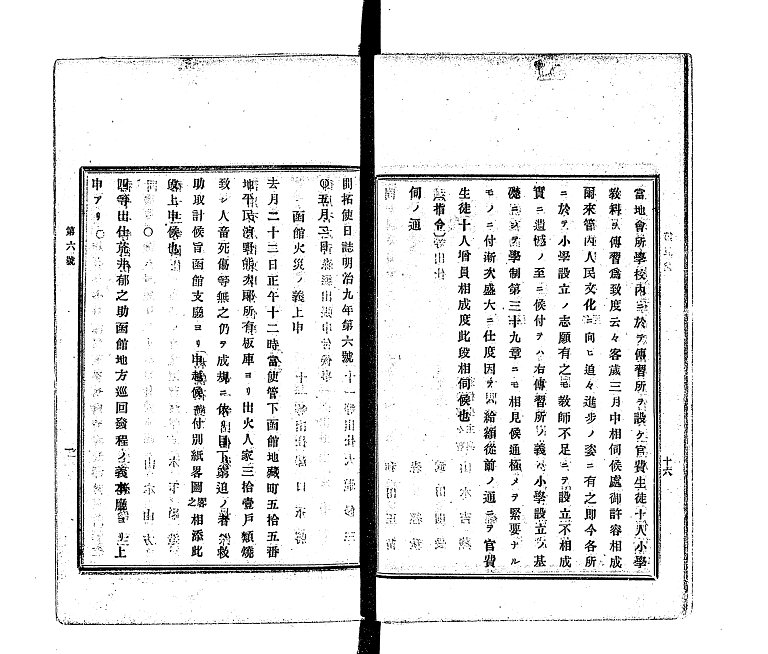 當地會所學校内ニ於ヲ傳習所ヲ設ケ官費生徒十人小學
敎科ヲ傳習爲致度云々客歳三月中相伺候處御許容相成
爾來管内人民文化ニ向ヒ追々進歩ノ姿ニ有之即今各所
ニ於ヲ小學設立ノ志願有之モ敎師不足ニヲ設立不相成
實ニ遺憾ノ至ニ候付ヲハ右傳習所ノ義ハ小學設立ノ基
礎ニヲ學制第三十九章ニモ相見候通極メヲ緊要ナル
モノニ付漸次盛大ニ仕度因ヲハ給額從前ノ通ニヲ官費
生徒十人增員相成度此段相伺候也
指令
伺ノ通
十六
開拓使日誌明治九年第六號
○五月二日
函館火災ノ義上申
去月二十三日正午十二時當使管下函館地藏町五拾五番
地平民濱野 所有板庫ヨリ出火人家三拾壹戸類燒
致シ人畜死傷等無之仍ヲ成規ニ依リ目下窮迫ノ者ハ救
助取計候旨函館支廳ヨリ申越候ニ付別紙畧圖畧之相添此
段上申候也
○
四等出仕 郁之助函館地方巡回發程ノ義本廳ヨリ上
申アリ○
第六號
一